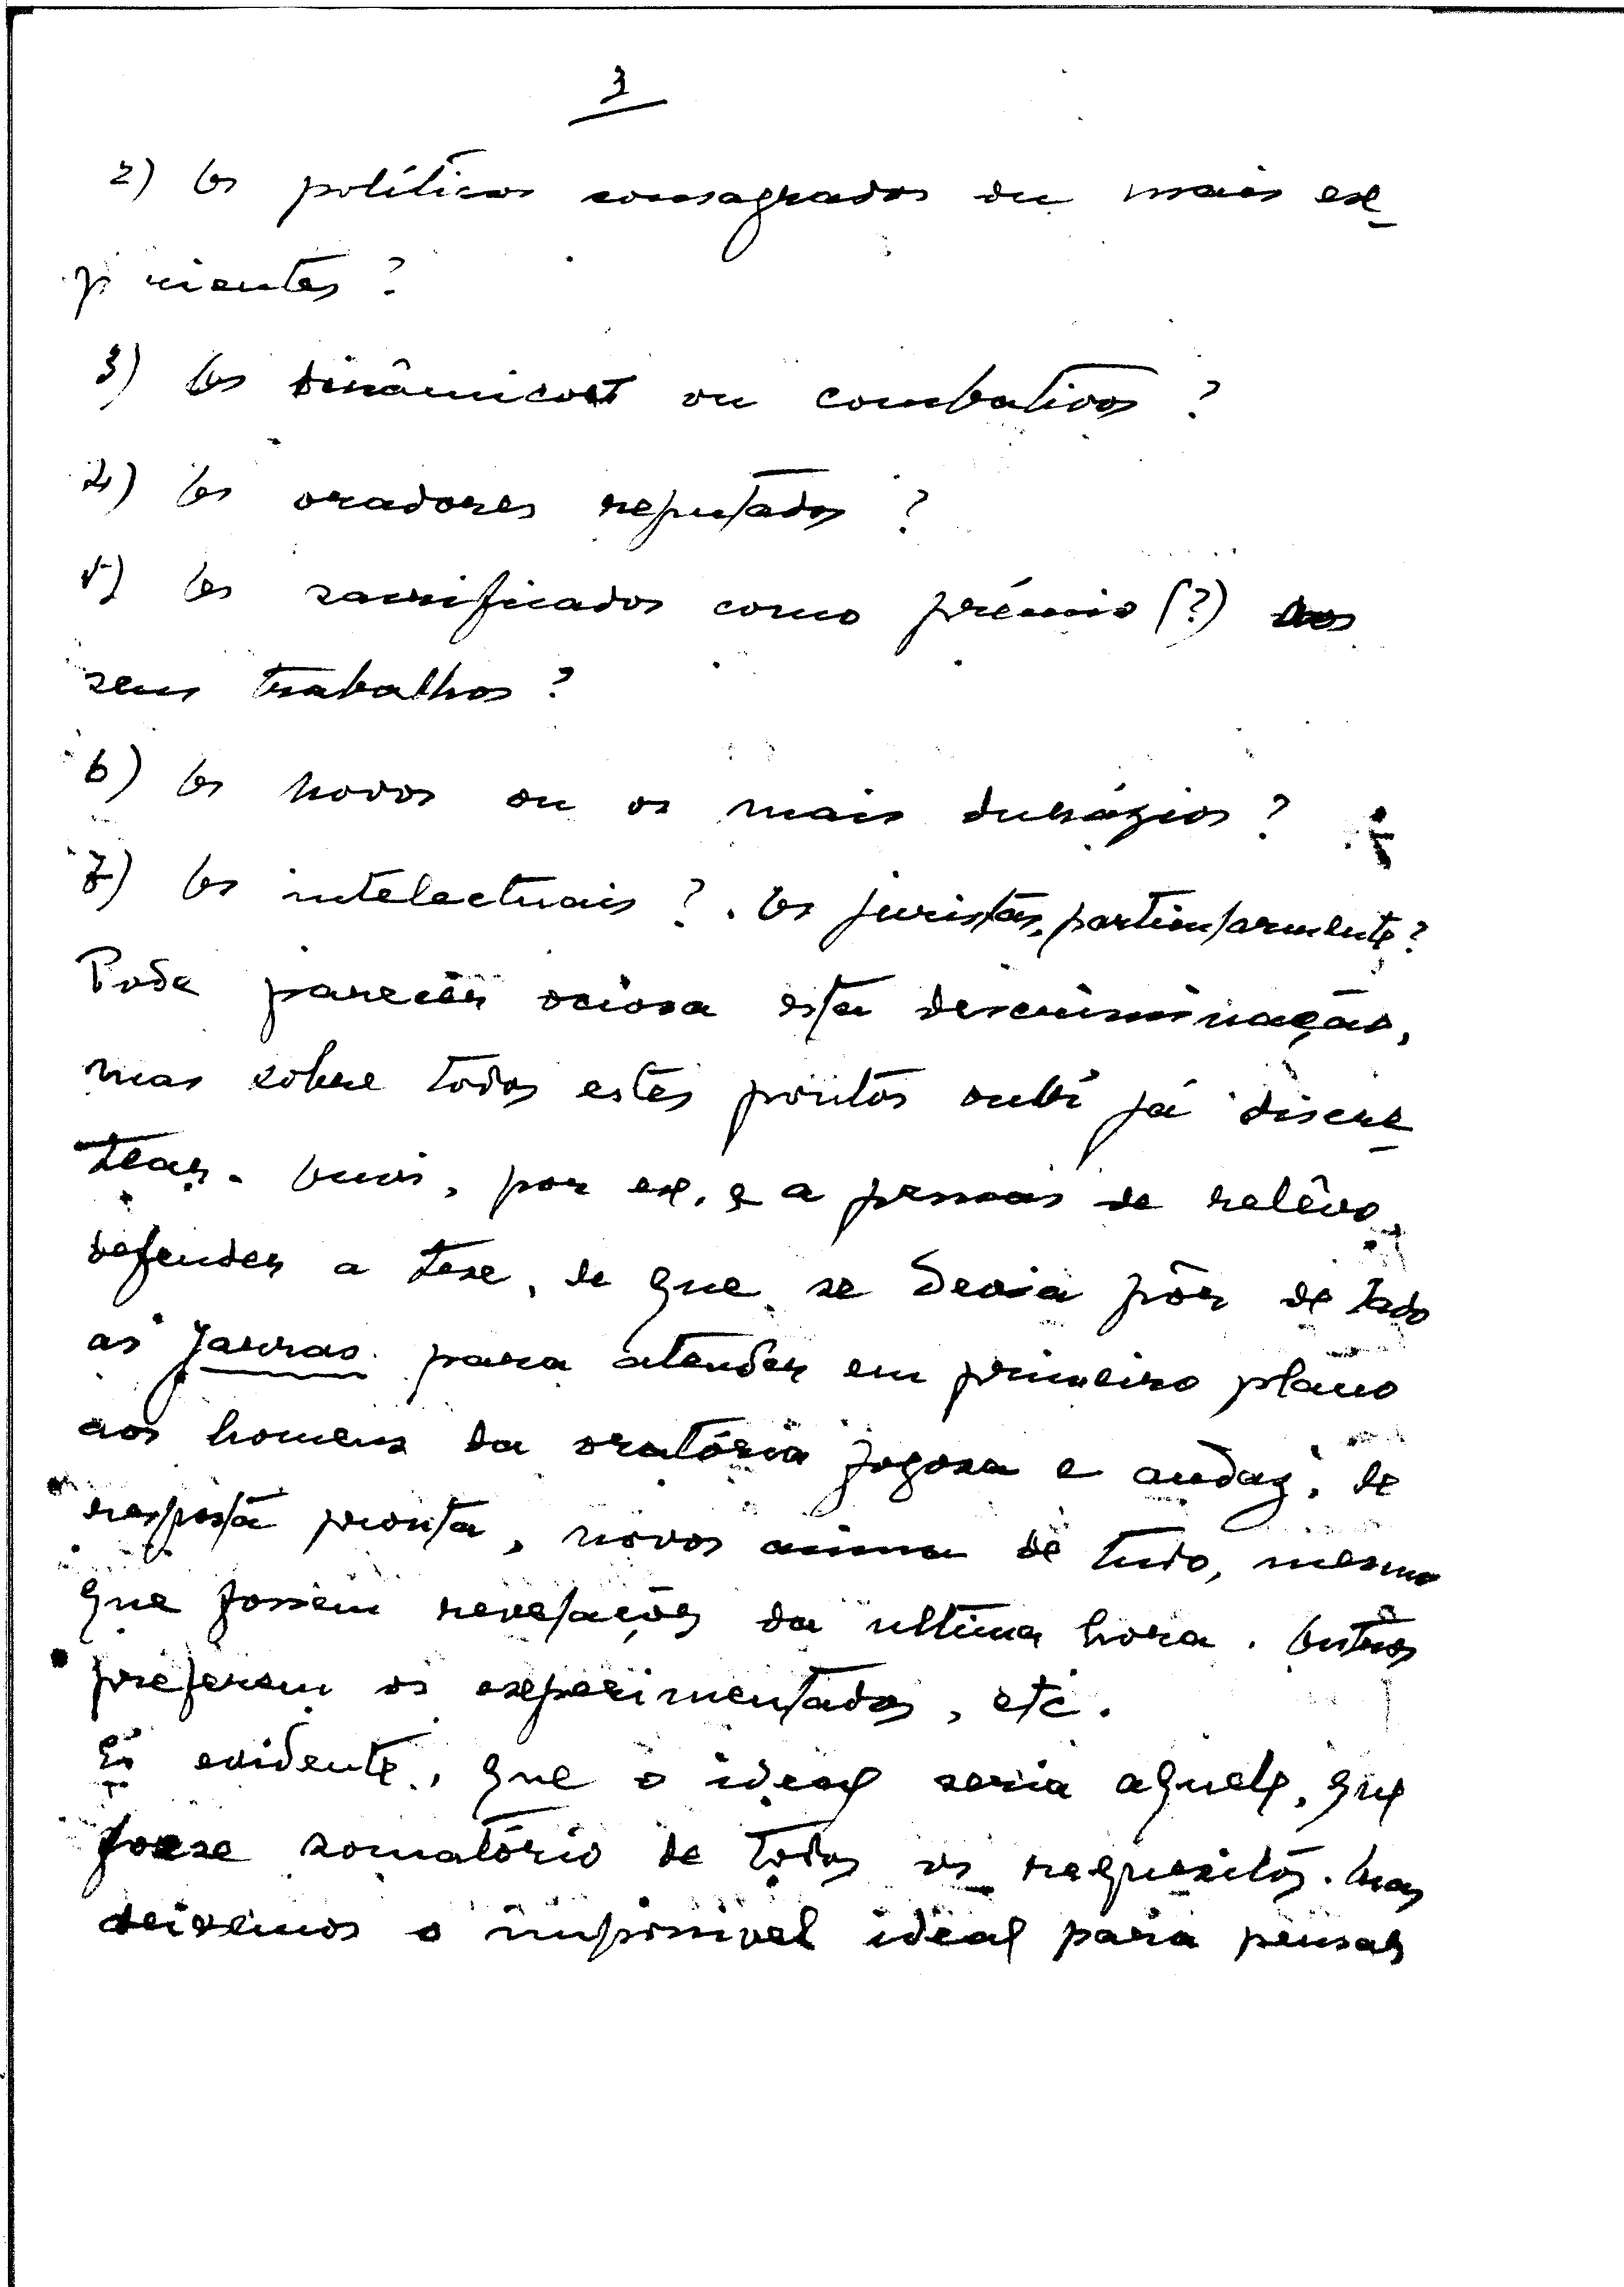 3
2) Os políticos consagrados ou mais ex-
p rientes?
3) Os dinâmicos ou combativos?
4) Os oradores reputados?
5) Os sacrificados como prémio (?) dos
seus trabalhos?
6) Os novos ou os mais durázios?
7) Os intelectuais?. Os juristas, particularmente?
Pode parecer ociosa esta descriminação,
mas sobre todos estes pontos ouvi já discre-
tear. Ouvi, por ex. e a pessoas de relêvo,
defender a tese, de que se devia pôr de lado
as jarras para atender em primeiro plano
aos homens da oratória fogosa e audaz, de
resposta pronta, novos acima de tudo, mesmo
que fossem revelações da ultima hora. Outros
preferem os experimentados, etc.
É evidente, que o ideal seria aquele, que
fosse somatório de todos os requesitos. Mas
deixemos o impossivel ideal para pensar